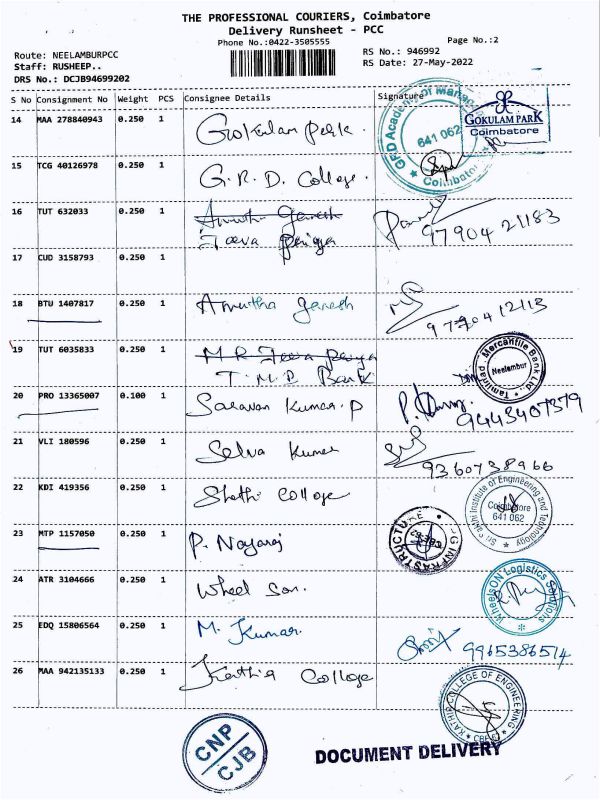 THE PROFESSIONAL COURIERS, Coimbatore
Delivery Runsheet - PCC
Phone No.:0422-3505555
Page No.:2
Route: NEELAMBURPCC
RS No.: 946992
Staff: RUSHEEP..
RS Date: 27-May-2022
DRS No.: DCJB94699202
S No Consignment No Weight PCS Consignee Details Signature
14 MAA 278840943 0.250 1 Gokulam Park.
GRD Academy of Management
641 062
Coimbatore
GOKULAM PARK
Coimbatore
15 TCG 40126978 0.250 1 G.R.D. College.
16 TUT 632033 0.250 1 Amutha Ganesh
Jeeva Periya
97904 21183
17 CUD 3158793 0.250 1
18 BTU 1407817 0.250 1 Amutha Ganesh
19 TUT 6035833 0.250 1 M R Jeeva Periya
T.M.B Bank
Tamilnad Mercantile Bank Ltd.
Neelambur
20 PRO 13365007 0.100 1 Saravan Kumar.P
9443407379
21 VLI 180596 0.250 1 Selva Kumar
9360738966
22 KDI 419356 0.250 1 College
Sri Sakthi Institute of Engineering and Technology
Coimbatore
641 062
23 MTP 1157050 0.250 1 P. Nagaraj
INFRASTRUCTURE
24 ATR 3104666 0.250 1 Wheel Son.
WheelsON Logistics Solutions
25 EDQ 15806564 0.250 1 M. Kumar.
9965386514
26 MAA 942135133 0.250 1 Kathir College
KATHIR COLLEGE OF ENGINEERING
CBE-62
CNP
CJB
DOCUMENT DELIVERY